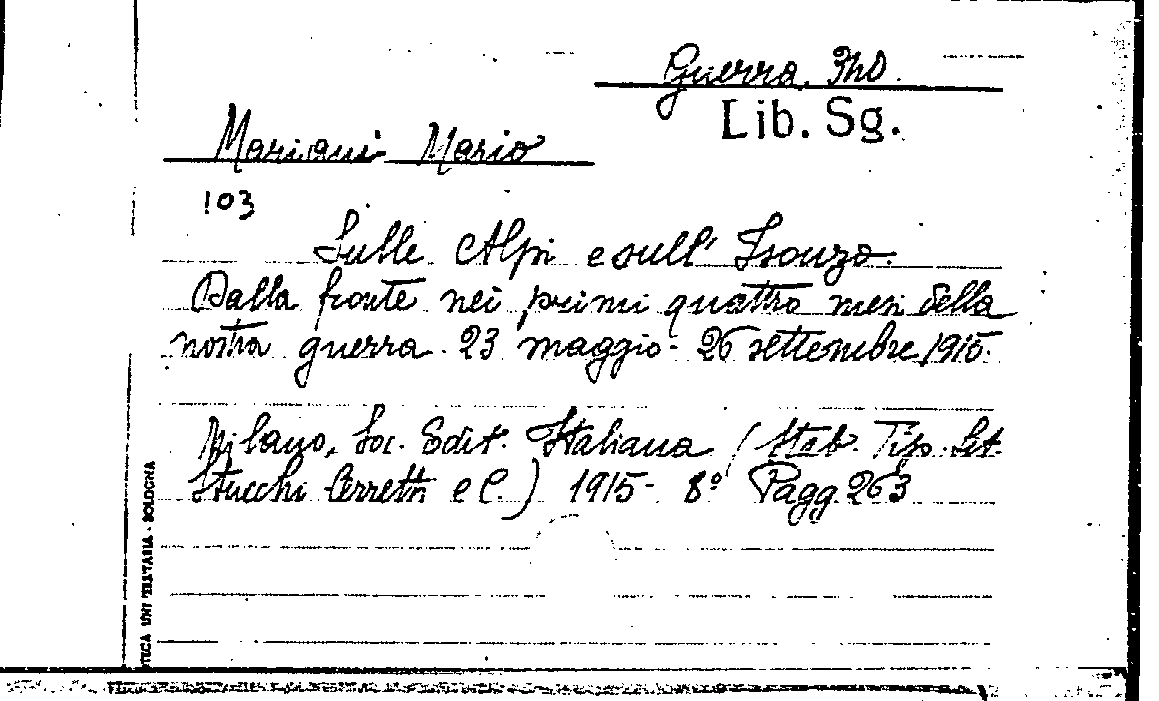 Guerra,
Lib. Sg.
Mariani Mario
103
Sulle Alpi e sull' Isonzo.
Dalla fronte nei primi quattro mesi della
nostra guerra. 23 maggio - 26 settembre 1915.
Milano, Soc. Edit. Italiana (Stab. Tip. Let.
Stucchi Cerretti e C.) 1915 - 8° Pagg. 263
BOLOGNA